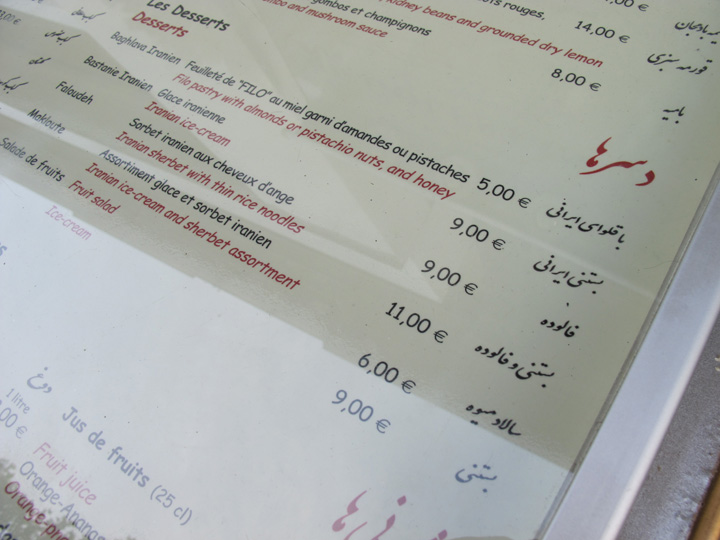 ts rouges,
Kidney beans and grounded dry lemon
14,00 €
قورمه سبزی
gombos et champignons
and mushroom sauce
8,00 €
بامیه
Les Desserts
Desserts
دسرها
Baghlava Iranien Feuilleté de "FILO" au miel garni d'amandes ou pistaches 5,00 € باقلوای ایرانی
Filo pastry with almonds or pistachio nuts, and honey
Bastanie Iranien Glace iranienne 9,00 € بستنی ایرانی
Iranian ice-cream
Faloudeh Sorbet iranien aux cheveux d'ange 9,00 € فالوده
Iranian sherbet with thin rice noodles
Makloute Assortiment glace et sorbet iranien 11,00 € بستنی و فالوده
Iranian ice-cream and sherbet assortment
Salade de fruits 6,00 € سالاد میوه
Fruit salad
9,00 € بستنی
Ice-cream
دوغ
1 litre
Jus de fruits (25 cl)
Fruit juice
Orange-Ananas